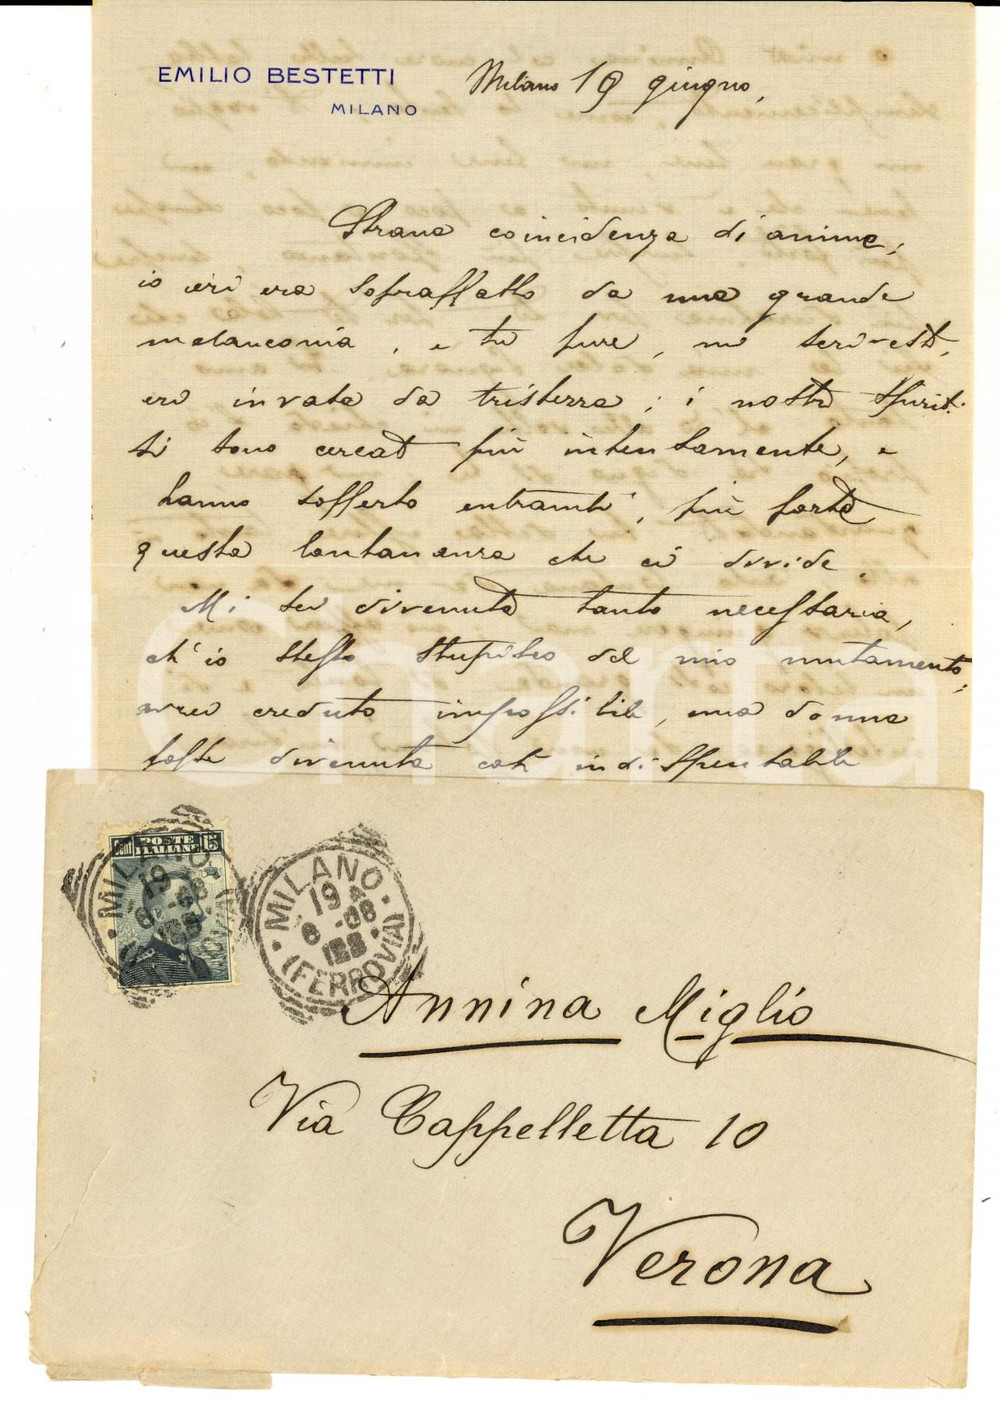 EMILIO BESTETTI
MILANO
Milano 19 giugno,
Strana coincidenza di anime;
io ieri era sopraffatto da una grande
melanconia, e tu pure, mi scrivesti,
eri invasa da tristezza; i nostri spiriti
si sono cercati più intensamente, e
hanno sofferto entrambi, più forte
questa lontananza che ci divide.
Mi sei divenuta tanto necessaria,
ch'io stesso stupisco del mio mutamento;
avrei creduto impossibile, una donna
fosse divenuta così indispensabile
15 CENT POSTE ITALIANE 15
MILANO
19
6 -08
(FERROVIA)
MILANO
19
6 -08
12S
(FERROVIA)
Annina Miglio
Via Cappelletta 10
Verona